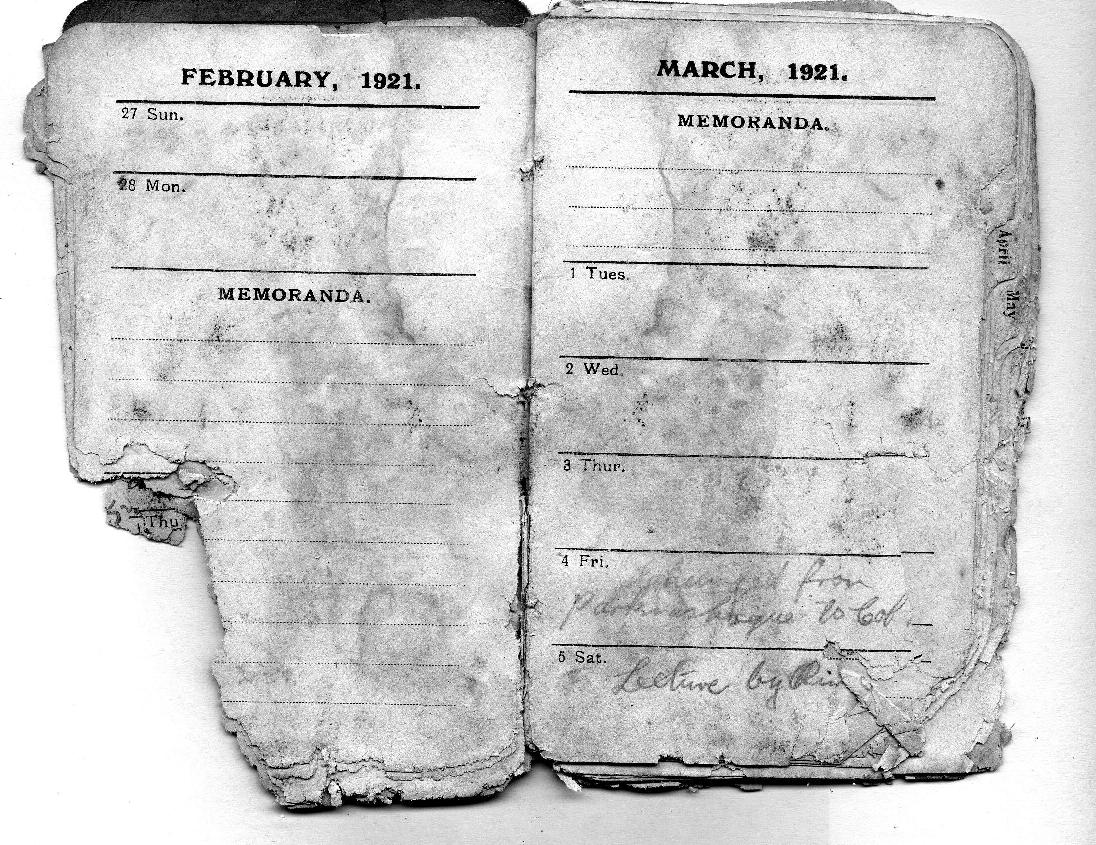 FEBRUARY, 1921.
27 Sun.
28 Mon.
MEMORANDA.
Thu
MARCH, 1921.
MEMORANDA.
1 Tues.
2 Wed.
3 Thur.
4 Fri.
from
to Col.
5 Sat.
Lecture by
April
May